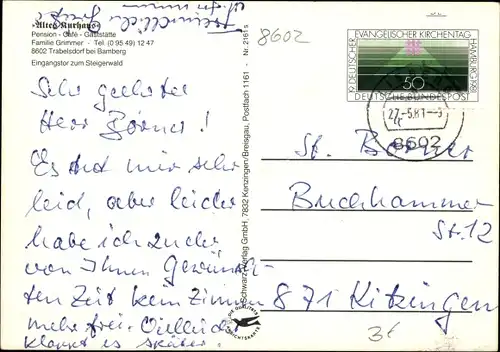 Freundliche
Grüße
"Altes Kurhaus"
Pension - Café - Gaststätte
Familie Grimmer - Tel. (0 95 49) 12 47
8602 Trabelsdorf bei Bamberg
Eingangstor zum Steigerwald
Sehr geehrter
Herr Börner!
Es tut mir sehr
leid, aber leider
habe ich zu der
von Ihnen Gewünsch-
ten Zeit kein Zimmer
mehr frei. Vielleicht
klappt es später.
Schwarz Verlag GmbH, 7832 Kenzingen/Breisgau, Postfach 1161 - Nr. 2161 s
8602
19. DEUTSCHER EVANGELISCHER KIRCHENTAG HAMBURG 1981
50
DEUTSCHE BUNDESPOST
27.-5.81
8602
St. Börner
Buchhammer
St. 12
871 Kitzingen